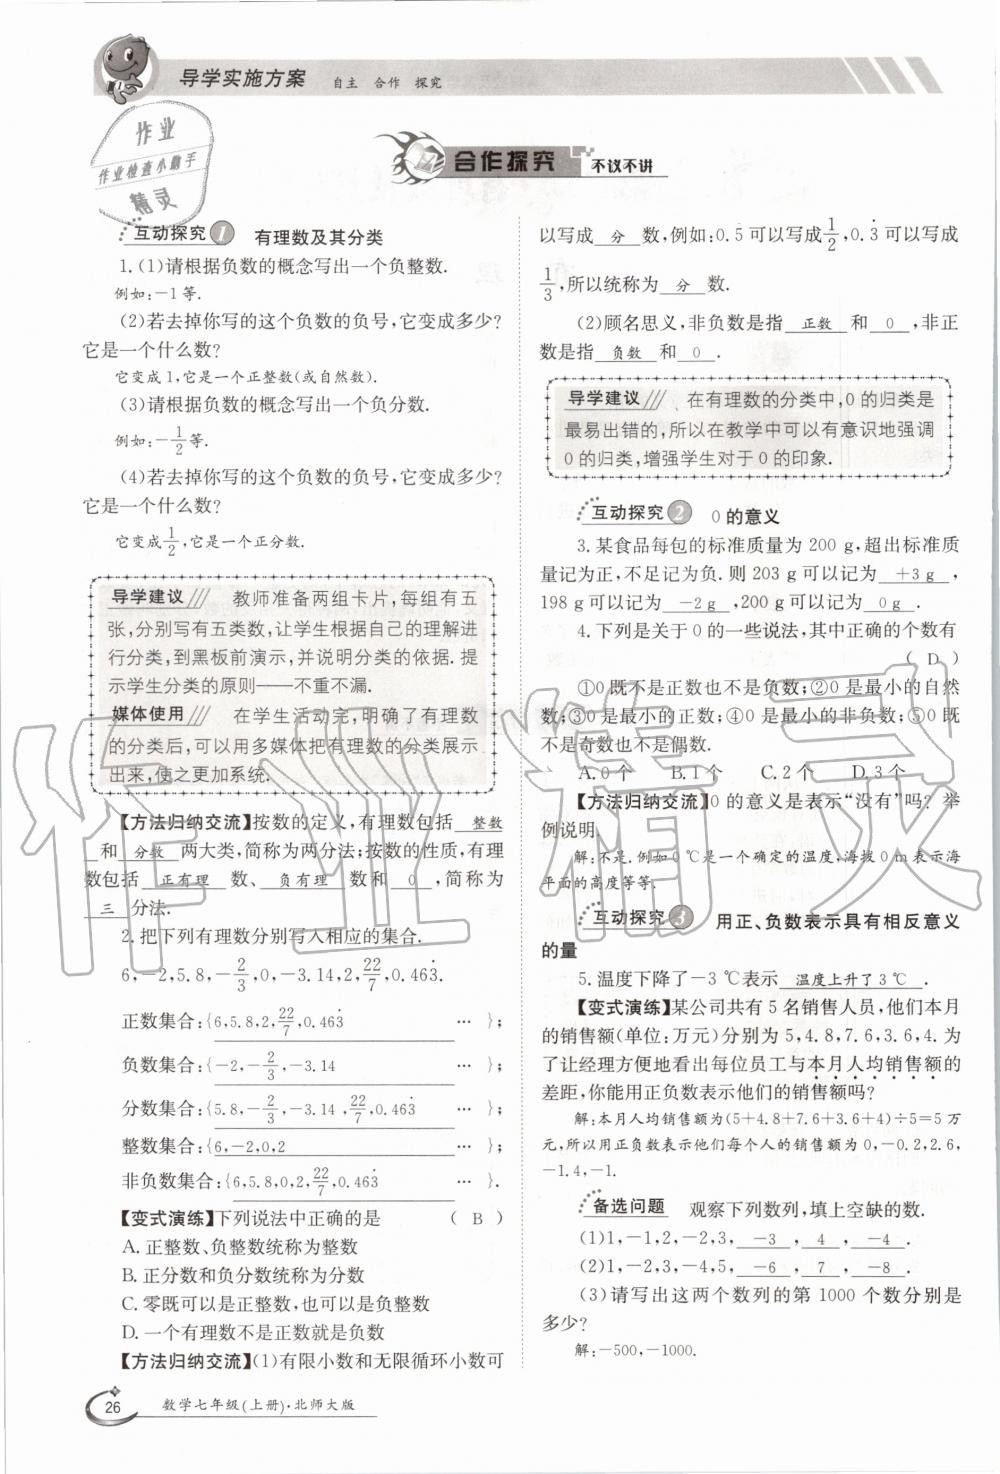 导学实施方案 自主 合作 探究
作业
作业检查小助手
精灵
合作探究 不议不讲
互动探究1 有理数及其分类
1.(1)请根据负数的概念写出一个负整数.
例如:-1等.
(2)若去掉你写的这个负数的负号,它变成多少?
它是一个什么数?
它变成1,它是一个正整数(或自然数).
(3)请根据负数的概念写出一个负分数.
例如:-1/2等.
(4)若去掉你写的这个负数的负号,它变成多少?
它是一个什么数?
它变成1/2,它是一个正分数.
导学建议/// 教师准备两组卡片,每组有五
张,分别写有五类数,让学生根据自己的理解进
行分类,到黑板前演示,并说明分类的依据.提
示学生分类的原则——不重不漏.
媒体使用/// 在学生活动完,明确了有理数
的分类后,可以用多媒体把有理数的分类展示
出来,使之更加系统.
【方法归纳交流】按数的定义,有理数包括 整数
和 分数 两大类,简称为两分法;按数的性质,有理
数包括 正有理 数、 负有理 数和 0 ,简称为
三 分法.
2.把下列有理数分别写入相应的集合.
6,-2,5.8,-2/3,0,-3.14,2,22/7,0.463̇.
正数集合:{6,5.8,2,22/7,0.463̇ … };
负数集合:{-2,-2/3,-3.14 … };
分数集合:{5.8,-2/3,-3.14,22/7,0.463̇ … };
整数集合:{6,-2,0,2 … };
非负数集合:{6,5.8,0,2,22/7,0.463̇ … }.
【变式演练】下列说法中正确的是 ( B )
A.正整数、负整数统称为整数
B.正分数和负分数统称为分数
C.零既可以是正整数,也可以是负整数
D.一个有理数不是正数就是负数
【方法归纳交流】(1)有限小数和无限循环小数可
以写成 分 数,例如:0.5可以写成1/2,0.3̇可以写成
1/3,所以统称为 分 数.
(2)顾名思义,非负数是指 正数 和 0 ,非正
数是指 负数 和 0 .
导学建议/// 在有理数的分类中,0的归类是
最易出错的,所以在教学中可以有意识地强调
0的归类,增强学生对于0的印象.
互动探究2 0的意义
3.某食品每包的标准质量为200 g,超出标准质
量记为正,不足记为负.则203 g可以记为 +3 g ,
198 g可以记为 -2 g ,200 g可以记为 0 g .
4.下列是关于0的一些说法,其中正确的个数有
( D )
①0既不是正数也不是负数;②0是最小的自然
数;③0是最小的正数;④0是最小的非负数;⑤0既
不是奇数也不是偶数.
A.0个 B.1个 C.2个 D.3个
【方法归纳交流】0的意义是表示“没有”吗?举
例说明.
解:不是.例如0 ℃是一个确定的温度,海拔0 m表示海
平面的高度等等.
互动探究3 用正、负数表示具有相反意义
的量
5.温度下降了-3 ℃表示 温度上升了3 ℃ .
【变式演练】某公司共有5名销售人员,他们本月
的销售额(单位:万元)分别为5,4.8,7.6,3.6,4.为
了让经理方便地看出每位员工与本月人均销售额的
差距,你能用正负数表示他们的销售额吗?
解:本月人均销售额为(5+4.8+7.6+3.6+4)÷5=5万
元,所以用正负数表示他们每个人的销售额为0,-0.2,2.6,
-1.4,-1.
备选问题 观察下列数列,填上空缺的数.
(1)1,-1,2,-2,3, -3 , 4 , -4 .
(2)1,-2,3,-4,5, -6 , 7 , -8 .
(3)请写出这两个数列的第1000个数分别是
多少?
解:-500,-1000.
26 数学七年级(上册)·北师大版
作业精灵